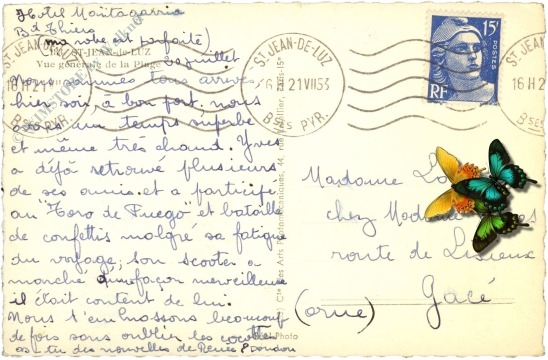 Hotel Montagarria
Bd Thiers
(ma robe est parfaite)
ST-JEAN-de-LUZ
Vue générale de la Plage
20 juillet
Nous sommes tous arrivés
hier soir, à bon port. nous
avons un temps superbe
et même très chaud. Yves
a déjà retrouvé plusieurs
de ses amis et a participé
au "Toro de Fuego" et bataille
de confettis malgré sa fatigue
du voyage, son scooter a
marché d'une façon merveilleuse
il était content de lui.
Nous t'embrassons beaucoup
de fois sans oublier les cocottes
as tu des nouvelles de Renée
ST-JEAN-DE-LUZ
16 H 21 VII 53
Bses PYR.
15F
POSTES
RF
ST-JEAN-DE-LUZ
16 H 21
Bses PYR.
16 H 2
Bses
Madame
chez Madame
route de Lisieux
Gacé
(orne)
Photo